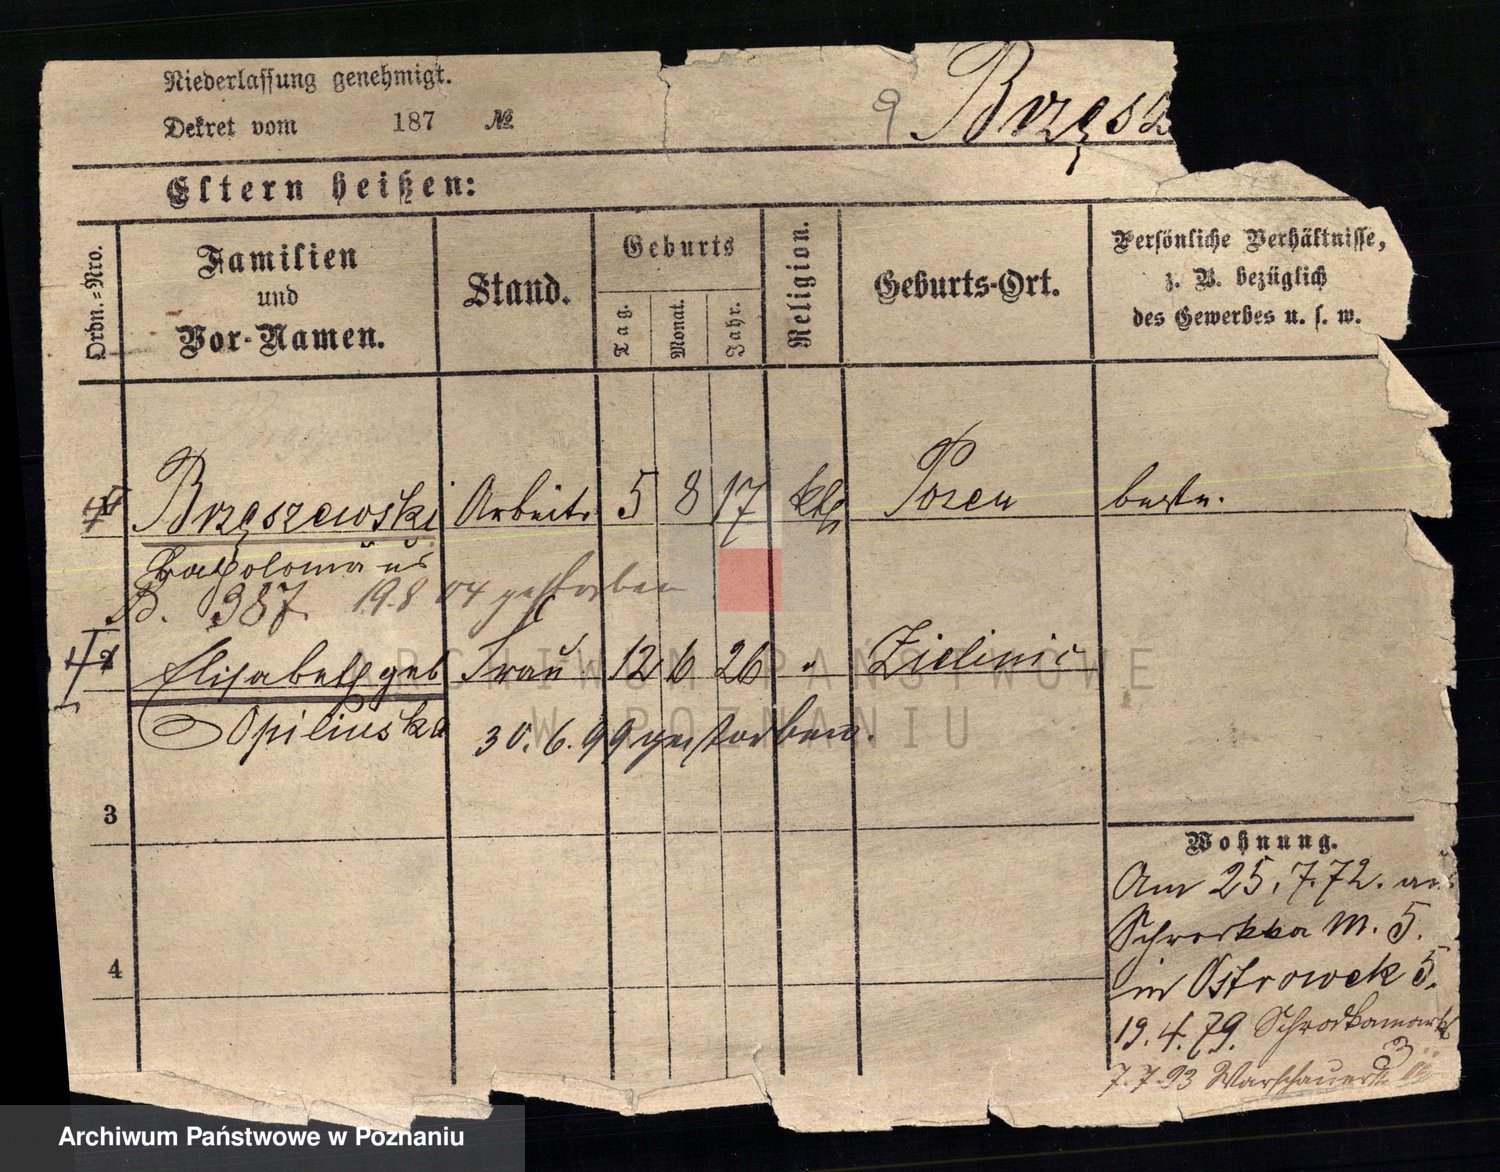 Niederlassung genehmigt.
Dekret vom 187 №
9 Brzęsz
Eltern heißen:
Ordn.=Nro.
Familien und Vor-Namen.
Stand.
Geburts
Tag.
Monat.
Jahr.
Religion.
Geburts-Ort.
Persönliche Verhältnisse,
z. B. bezüglich
des Gewerbes u. s. w.
Brzęszewski Arbeitr 5 8 17 kth Posen
Bartolomäus
B. 387. 19.8 04 gestorben
Elisabeth geb Frau 12 6 26 " Zielinic
Opilinska 30.6.99 gestorben.
3
4
Wohnung.
Am 25.7.72. an
Schrodka M. 5.
in Ostrowek 5.
19.4.79. Schrodkamarkt
3
7.7.93 Warschauerstr
ARCHIWUM PAŃSTWOWE
W POZNANIU
Archiwum Państwowe w Poznaniu